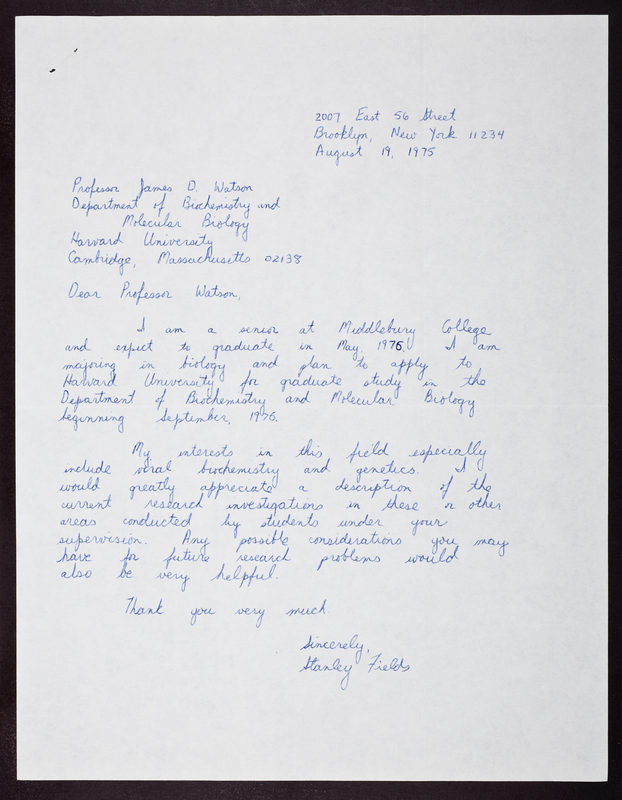 2007 East 56 Street
Brooklyn, New York 11234
August 19, 1975
Professor James D. Watson
Department of Biochemistry and
Molecular Biology
Harvard University
Cambridge, Massachusetts 02138
Dear Professor Watson,
I am a senior at Middlebury College
and expect to graduate in May, 1976. I am
majoring in biology and plan to apply to
Harvard University for graduate study in the
Department of Biochemistry and Molecular Biology
beginning September, 1976.
My interests in this field especially
include viral biochemistry and genetics. I
would greatly appreciate a description of the
current research investigations in these or other
areas conducted by students under your
supervision. Any possible considerations you may
have for future research problems would
also be very helpful.
Thank you very much.
Sincerely,
Stanley Fields